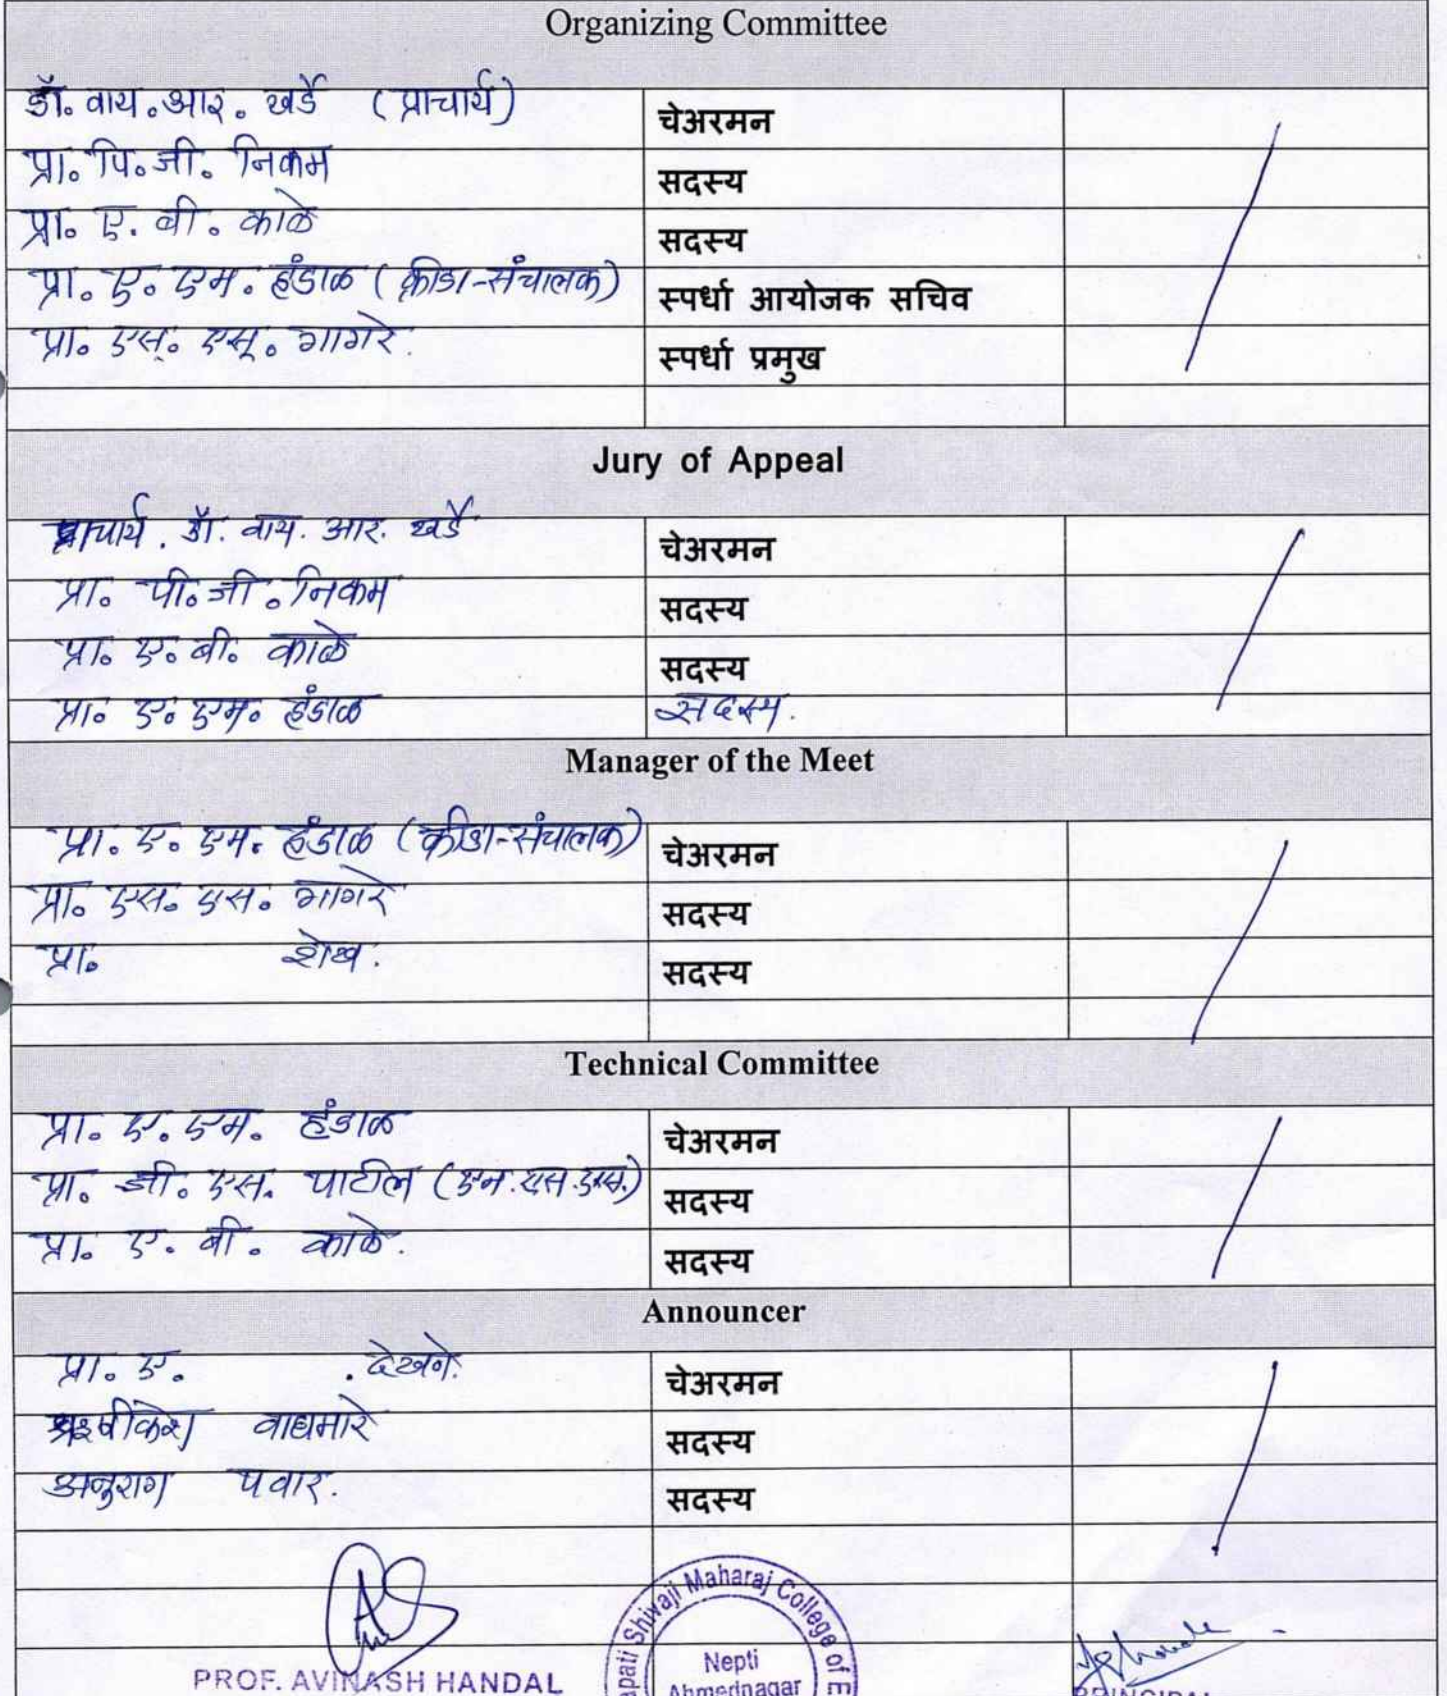 Organizing Committee
डॉ. वाय. आर. खर्डे (प्राचार्य) चेअरमन
प्रा. पि. जी. निकम सदस्य
प्रा. ए. बी. काळे सदस्य
प्रा. ए. एम. हंडाळ (क्रीडा-संचालक) स्पर्धा आयोजक सचिव
प्रा. एस्. एस्. गागरे. स्पर्धा प्रमुख
Jury of Appeal
प्राचार्य. डॉ. वाय. आर. खर्डे चेअरमन
प्रा. पी. जी. निकम सदस्य
प्रा. ए. बी. काळे सदस्य
प्रा. ए. एम. हंडाळ सदस्य.
Manager of the Meet
प्रा. ए. एम. हंडाळ (क्रीडा-संचालक) चेअरमन
प्रा. एस. एस. गागरे सदस्य
प्रा. शेख. सदस्य
Technical Committee
प्रा. ए. एम. हंडाळ चेअरमन
प्रा. जी. एस. पाटील (एन.एस.एस.) सदस्य
प्रा. ए. बी. काळे. सदस्य
Announcer
प्रा. ए. . देखणे. चेअरमन
ऋषीकेश वाघमारे सदस्य
अनुराग पवार. सदस्य
pati Shivaji Maharaj College of E
Nepti
Ahmednagar
PROF. AVINASH HANDAL
PRINCIPAL